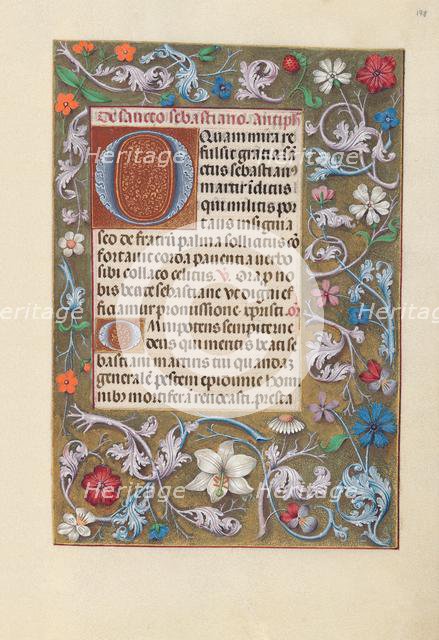 198
De sancto sebastiano. Antiph
O Quam mira re
fulsit gratia sā
ctus sebastian9
martir īclitus
qui militis por
tans insignia
s; de fratrū palma sollicitus cō
fortavit corda paventia verbo
sibi collato celitus. V. Ora p no
bis beate sebastiane Vt digni ef
ficiamur promissione xpristi. or
Omnipotens sempiterne
deus qui meritis beati se
bastiani martiris tui quandā
generalē pestem epidimie homi
nibus mortiferā revocasti. presta
Heritage
Heritage
Heritage
Heritage
Heritage
Heritage
Heritage
Heritage